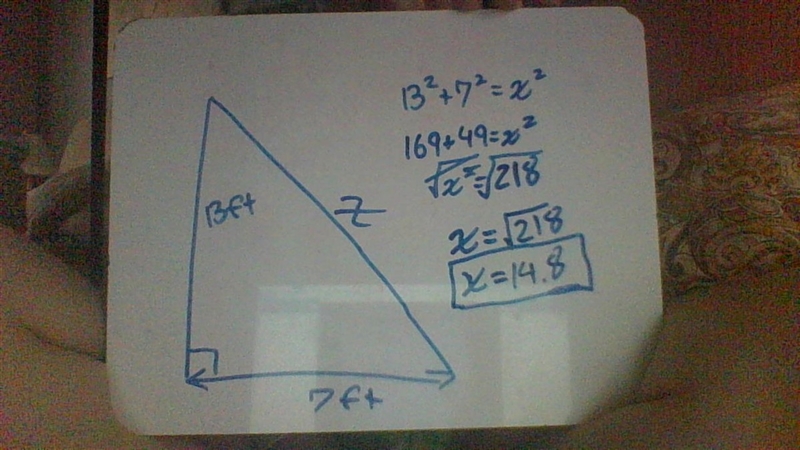 13² + 7² = x²
169 + 49 = x²
√x² = √218
x = √218
x = 14.8
13 ft
z
7 ft